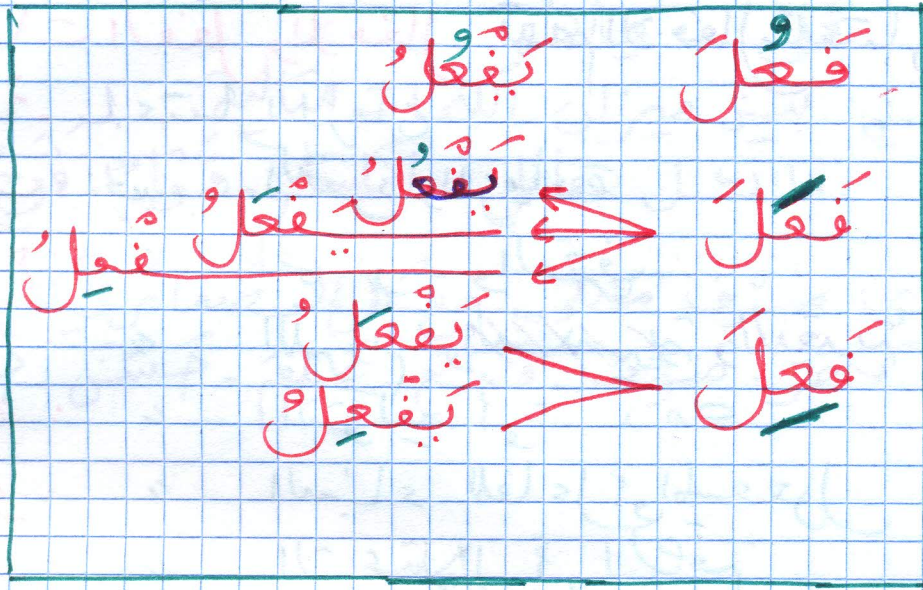 فَعُلَ يَفْعُلُ
فَعَلَ يَفْعُلُ
يَفْعَلُ
ـفْعِلُ
فَعِلَ يَفْعَلُ
يَفْعِلُ